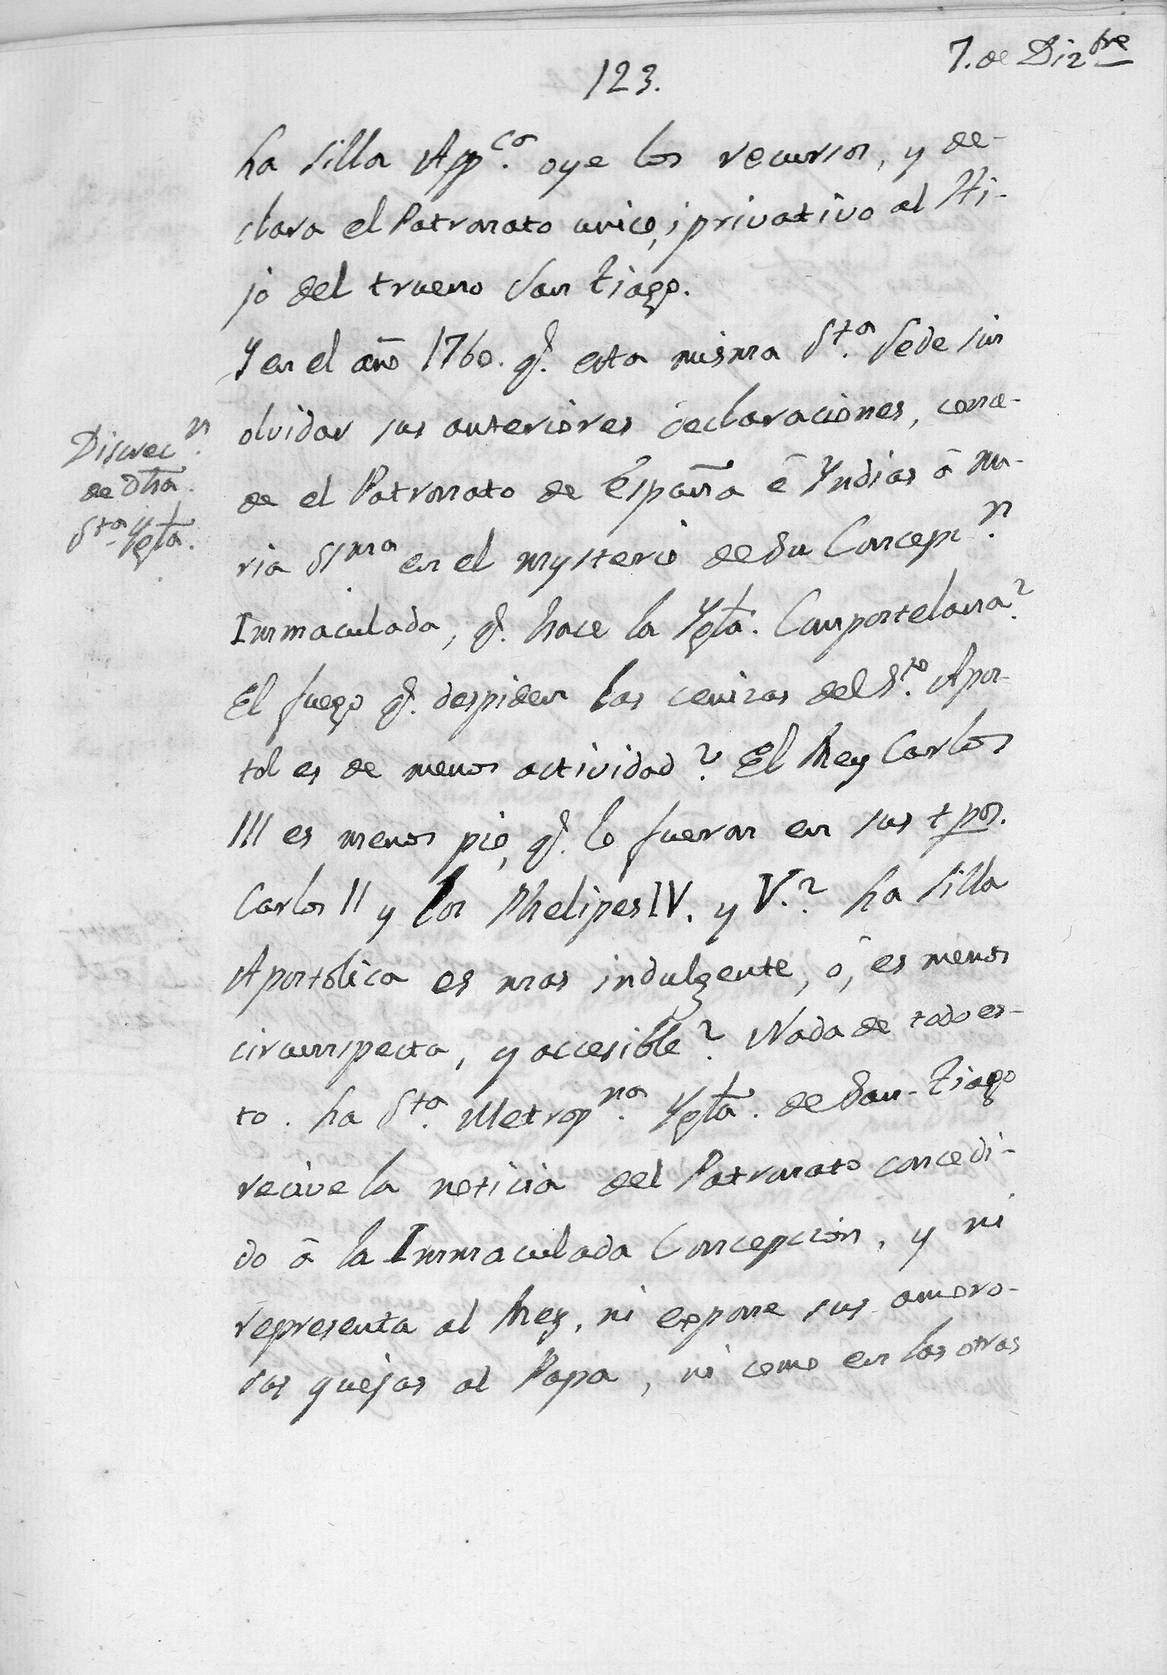 7. de Dizbre
123.
La silla Appca. oye los recursos, y de-
clara el Patronato unico, i privativo al Hi-
jo del trueno San Tiago.
Y en el año 1760. q. esta misma Sta. Sede sin
olvidar sus anteriores declaraciones, conce-
de el Patronato de España è Yndias â Ma-
ria Sma en el mysterio de Su Concepn.
Immaculada, q. hace la Ygla. Compostelana?
El fuego q. despiden las cenizas del Sto. Apos-
tol es de menos actividad? El Rey Carlos
III es menos pio, q. lo fueron en sus tpos.
Carlos II y los Phelipes IV. y V.? La silla
Apostolica es mas indulgente, ó, es menos
circunspecta, y accesible? Nada de todo es-
to. La Sta. Metropna. Ygla. de San-Tiago
recive la noticia del Patronato concedi-
do â la Immaculada Concepcion, y ni
representa al Rey, ni expone sus amoro-
sas quejas al Papa, ni como en las otras
Discrecn.
de Dha.
Sta. Ygla.